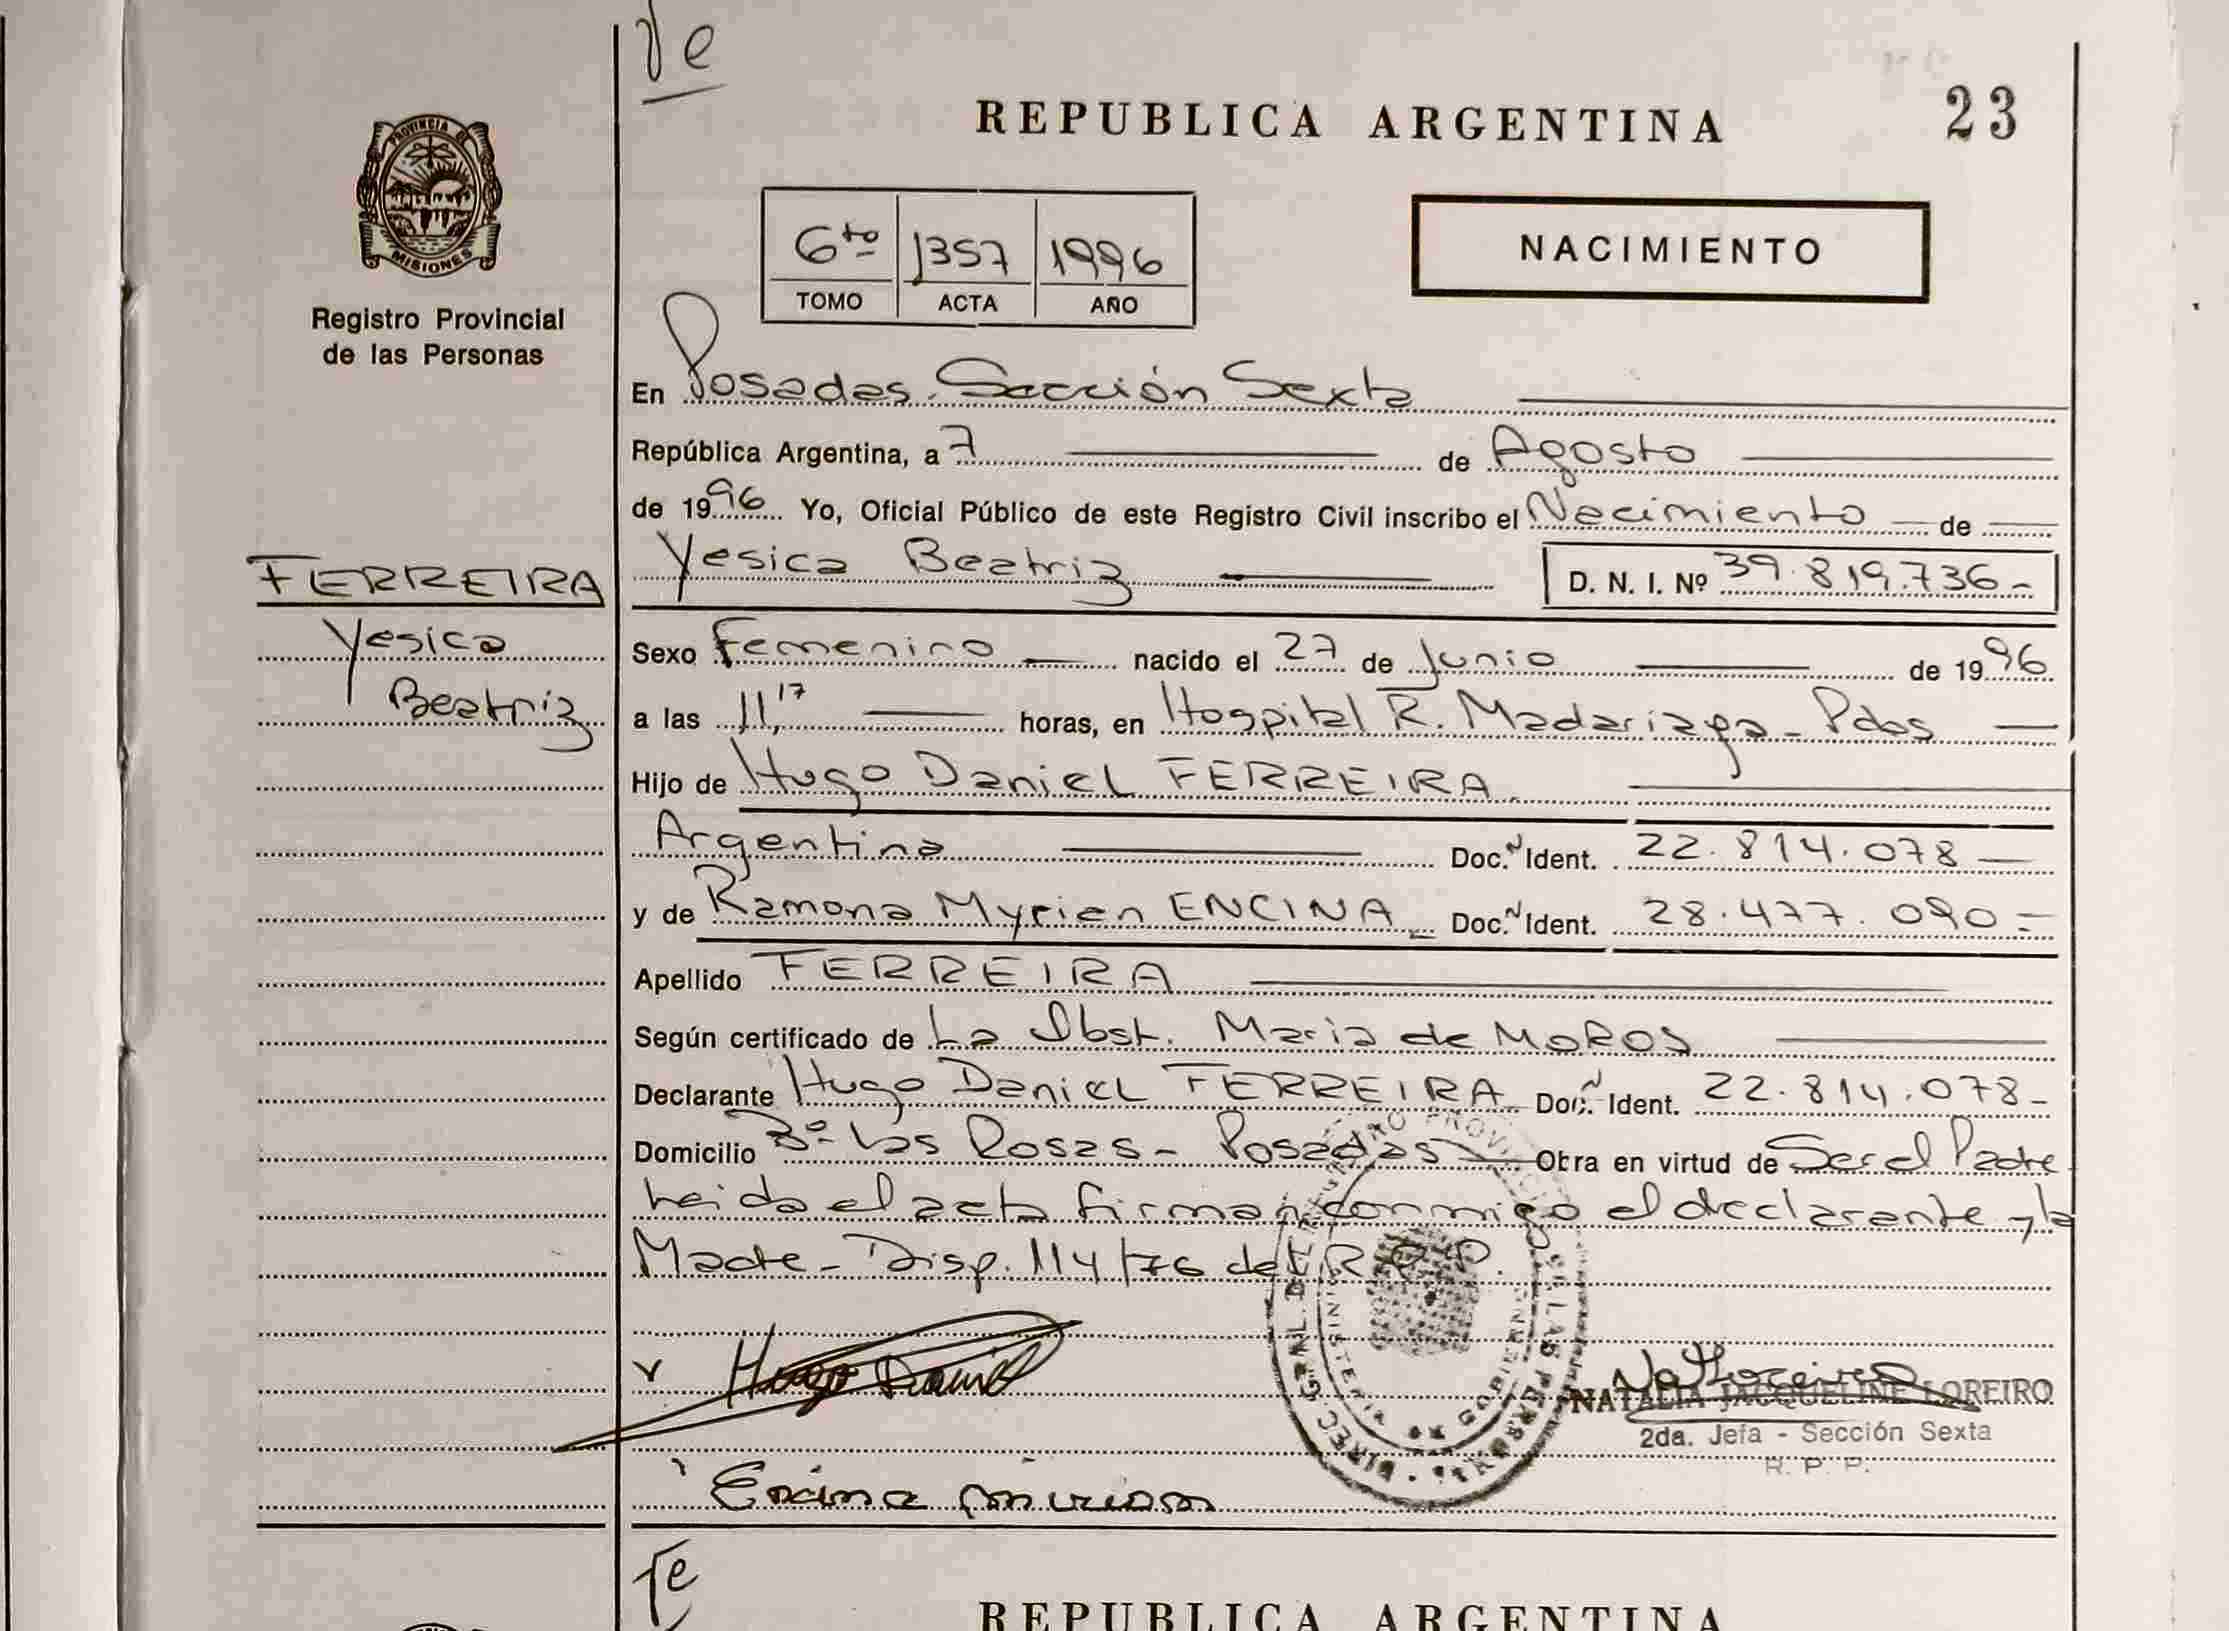 Te
REPUBLICA ARGENTINA
23
PROVINCIA DE
MISIONES
Registro Provincial
de las Personas
6to 1357 1996
TOMO ACTA AÑO
NACIMIENTO
En Posadas. Sección Sexta
República Argentina, a 7 de Agosto
de 1996 Yo, Oficial Público de este Registro Civil inscribo el Nacimiento de
FERREIRA
Yesica Beatriz
Yesica Beatriz D. N. I. Nº 39.819.736-
Sexo Femenino nacido el 27 de Junio de 1996
a las 11,17 horas, en Hospital R. Madariaga - Pdas
Hijo de Hugo Daniel FERREIRA
Argentina Doc.N Ident. 22.814.078
y de Ramona Myrien ENCINA Doc.N Ident. 28.477.090=
Apellido FERREIRA
Según certificado de La Obst. Maria de MOROS
Declarante Hugo Daniel FERREIRA Doc.N Ident. 22.814.078-
Domicilio Bº Las Rosas - Posadas Obra en virtud de Ser el Padre
Leida el acta firman conmigo el declarante y la
Madre - Disp. 114/76 del R.P.P.
Hugo Daniel
NATALIA JACQUELINE LOREIRO
2da. Jefa - Sección Sexta
R. P. P.
Encina miriam
Te
REPUBLICA ARGENTINA